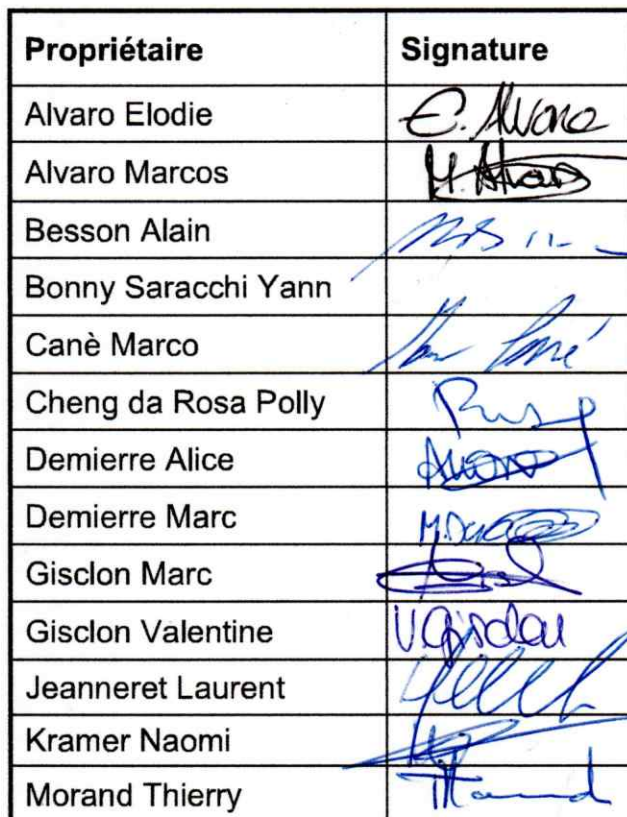 Propriétaire Signature
Alvaro Elodie E. Alvaro
Alvaro Marcos M. Alvaro
Besson Alain
Bonny Saracchi Yann
Canè Marco
Cheng da Rosa Polly
Demierre Alice
Demierre Marc
Gisclon Marc
Gisclon Valentine V Gisclon
Jeanneret Laurent
Kramer Naomi
Morand Thierry